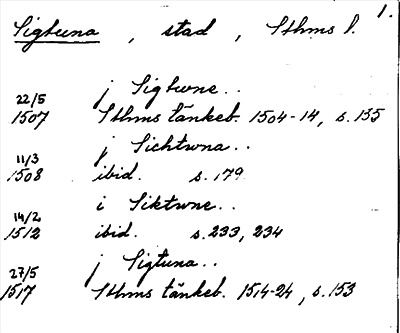 1.
Sigtuna, stad, Sthms l.
j Sigtwne..
22/5
1507 Sthms tänkeb. 1504-14, s. 135
j Sichtwna..
11/3
1508 ibid. s. 179
i Siktwne..
14/2
1512 ibid. s. 233, 234
j Sigtuna..
27/5
1517 Sthms tänkeb. 1514-24, s. 153